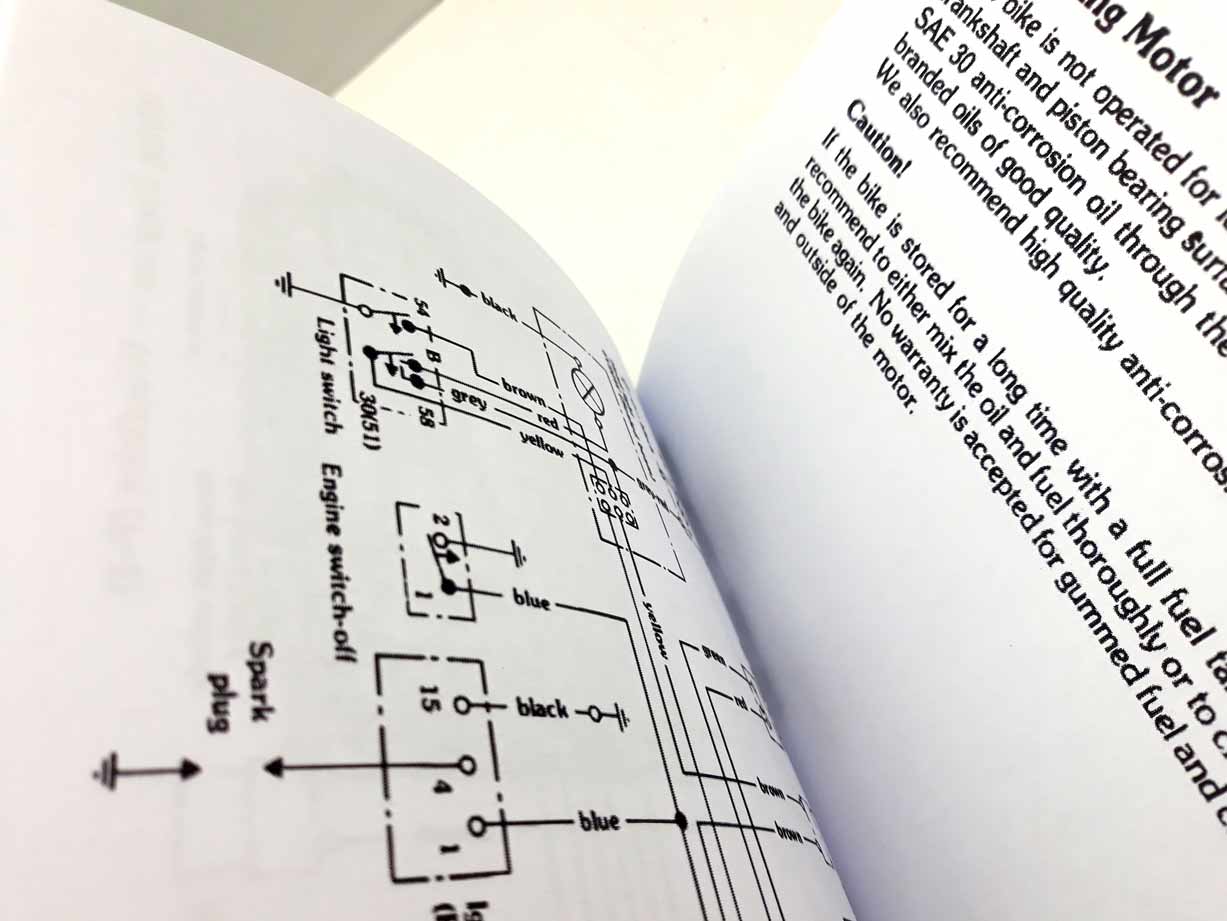 black
54
B
L
58
30(51)
Light switch
brown
red
grey
yellow
2
1
Engine switch-off
blue
yellow
green
red
15
black
4
Spark
plug
1
blue
brown
brown
Motor
bike is not operated for
crankshaft and piston bearing
SAE 30 anti-corrosion oil through the
branded oils of good quality.
We also recommend high quality
Caution!
If the bike is stored for a long time with a full fuel
recommend to either mix the oil and fuel thoroughly or to
the bike again. No warranty is accepted for gummed fuel and
and outside of the motor.